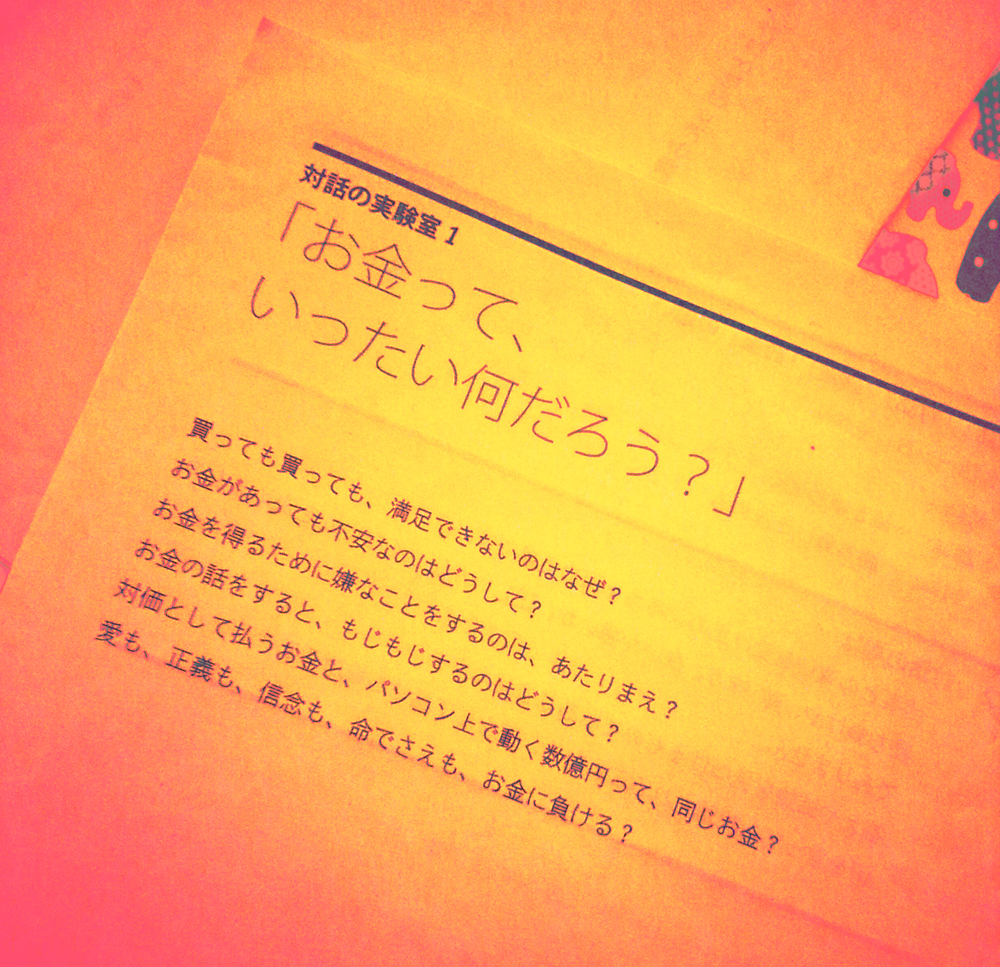 対話の実験室 1
「お金って、
いったい何だろう？」
買っても買っても、満足できないのはなぜ？
お金があっても不安なのはどうして？
お金を得るために嫌なことをするのは、あたりまえ？
お金の話をすると、もじもじするのはどうして？
対価として払うお金と、パソコン上で動く数億円って、同じお金？
愛も、正義も、信念も、命でさえも、お金に負ける？